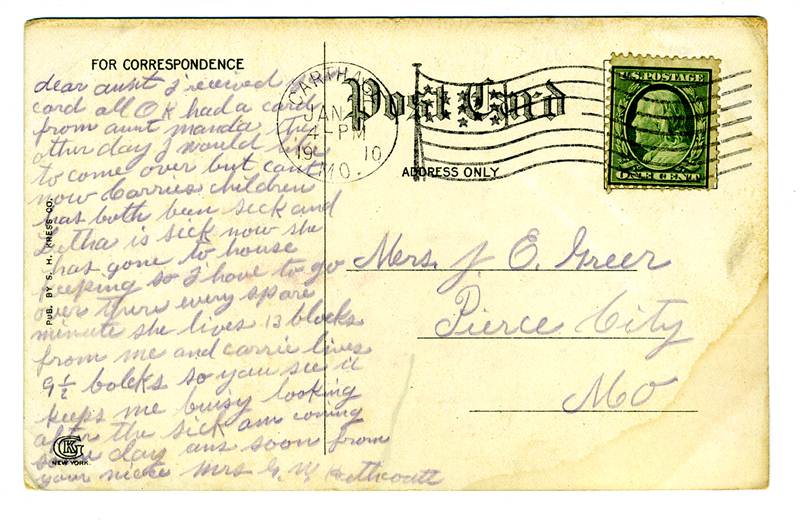 FOR CORRESPONDENCE
Post Card
ADDRESS ONLY
CARTHA
JAN
4-PM
19 10
MO.
U.S. POSTAGE
ONE CENT
dear aunt I recived
card all OK had a card
from aunt manda the
other day I would like
to come over but cant
now Carries children
has both been sick and
Letha is sick now she
has gone to house
keeping so I have to go
over there every spare
minute she lives 13 blocks
from me and carrie lives
9 1/2 bolcks so you see it
keeps me busy looking
after the sick am coming
some day ans soon from
your niece Mrs G. W.
Mrs. J. E. Greer
Pierce City
Mo
PUB. BY S. H. KRESS CO.
GK
NEW YORK.